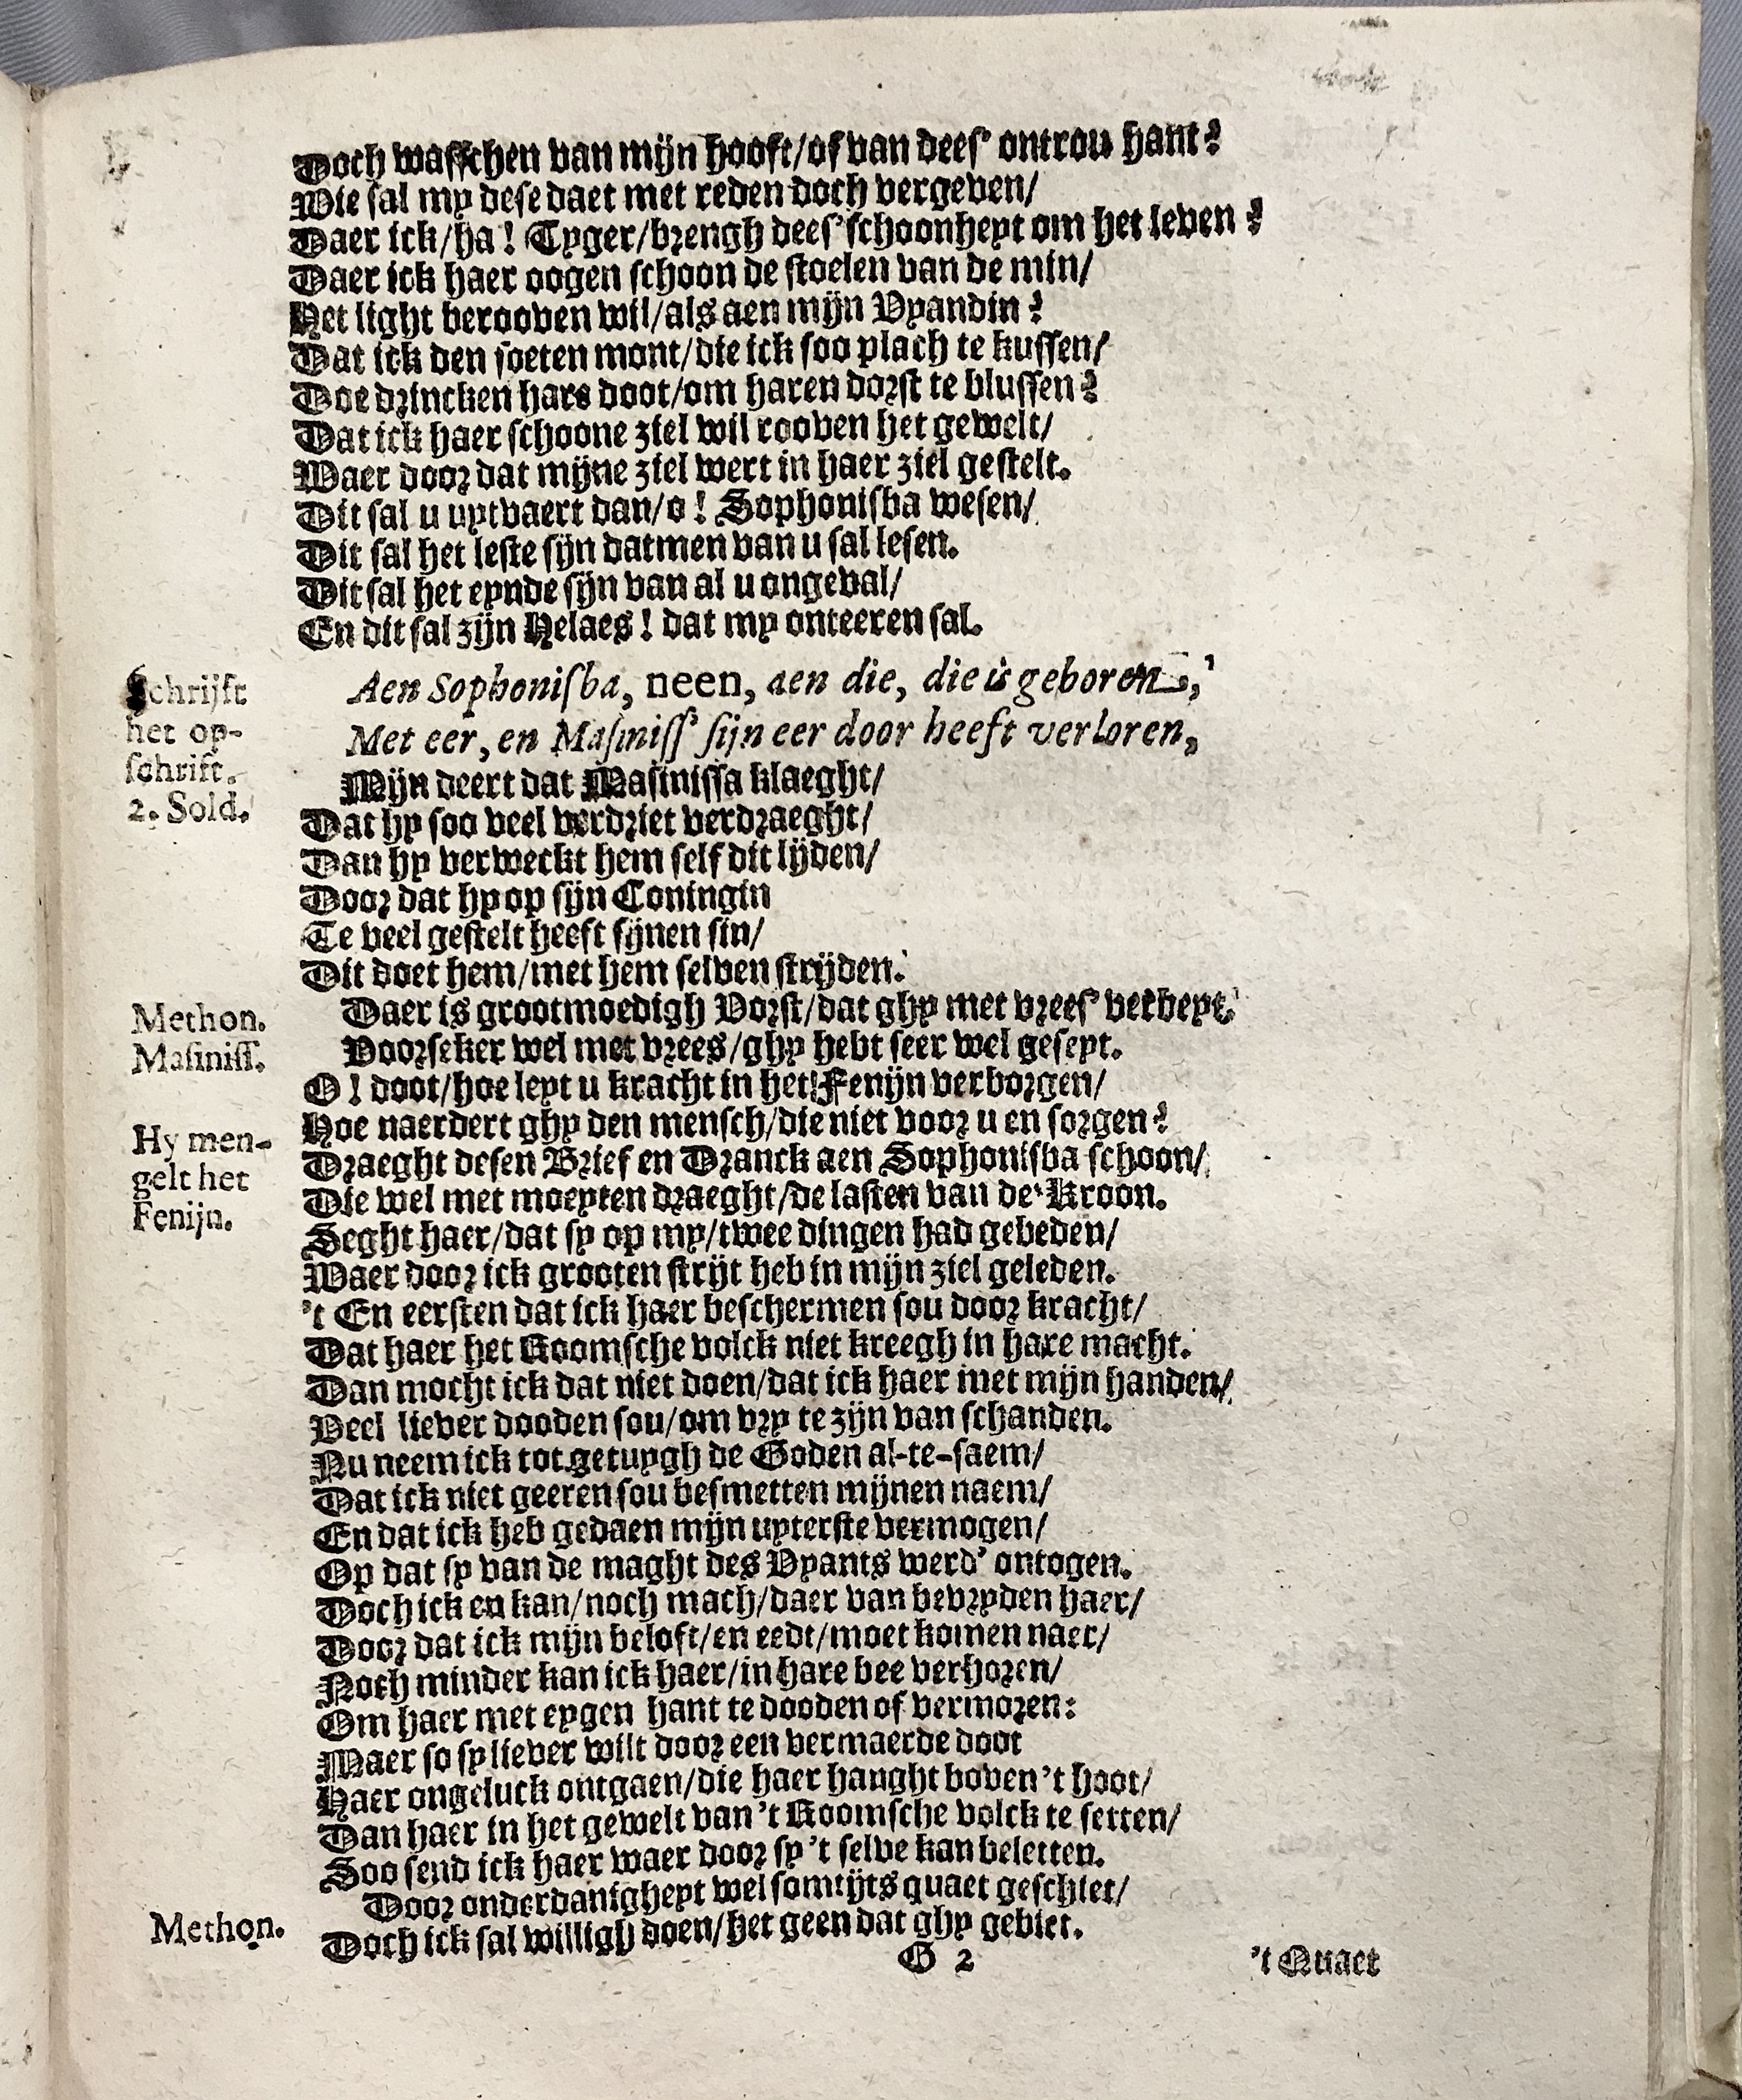 Doch wasschen van mijn hooft/of van dees' ontrou hant?
Wie sal my dese daet met reden doch vergeven/
Daer ick/ha! Tyger/brengh dees' schoonheyt om het leven?
Daer ick haer oogen schoon de stoelen van de min/
Het light berooven wil/als aen mijn Vyandin?
Dat ick den soeten mont/die ick soo plach te kussen/
Doe drincken hare doot/om haren dorst te blussen?
Dat ick haer schoone ziel wil rooven het gewelt/
Waer door dat mijne ziel wert in haer ziel gestelt.
Dit sal u uytvaert dan/o! Sophonisba wesen/
Dit sal het leste sijn datmen van u sal lesen.
Dit sal het eynde sijn van al u ongeval/
En dit sal zijn Helaes! dat my onteeren sal.
Schrijft het opschrift.
Aen Sophonisba, neen, aen die, die is geboren,
Met eer, en Masiniss' sijn eer door heeft verloren,
2. Sold.
Mijn deert dat Masinissa klaeght/
Dat hy soo veel verdriet verdraeght/
Dan hy verweckt hem self dit lijden/
Door dat hy op sijn Coningin
Te veel gestelt heeft sijnen sin/
Dit doet hem/met hem selven strijden.
Methon.
Daer is grootmoedigh Vorst/dat ghy met vrees' verbeyt.
Masiniss.
Voorseker wel met vrees/ghy hebt seer wel geseyt.
O! doot/hoe leyt u kracht in het Fenijn verborgen/
Hoe naerdert ghy den mensch/die niet voor u en sorgen?
Hy mengelt het Fenijn.
Draeght desen Brief en Dranck aen Sophonisba schoon/
Die wel met moeyten draeght/de lasten van de Kroon.
Seght haer/dat sy op my/twee dingen had gebeden/
Waer door ick grooten strijt heb in mijn ziel geleden.
't En eersten dat ick haer beschermen sou door kracht/
Dat haer het Roomsche volck niet kreegh in hare macht.
Dan mocht ick dat niet doen/dat ick haer met mijn handen/
Veel liever dooden sou/om vry te zijn van schanden.
Nu neem ick tot getuygh de Goden al-te-saem/
Dat ick niet geeren sou besmetten mijnen naem/
En dat ick heb gedaen mijn uyterste vermogen/
Op dat sy van de maght des Vyants werd' ontogen.
Doch ick en kan/noch mach/daer van bevryden haer/
Door dat ick mijn beloft/en eedt/moet komen naer/
Noch minder kan ick haer/in hare bee verhoren/
Om haer met eygen hant te dooden of vermoren:
Maer so sy liever wilt door een vermaerde doot
Haer ongeluck ontgaen/die haer hanght boven 't hoot/
Dan haer in het gewelt van 't Roomsche volck te setten/
Soo send ick haer waer door sy 't selve kan beletten.
Methon.
Door onderdanigheyt wel somtijts quaet geschiet/
Doch ick sal willigh doen/het geen dat ghy gebiet.
G 2
't Quaet